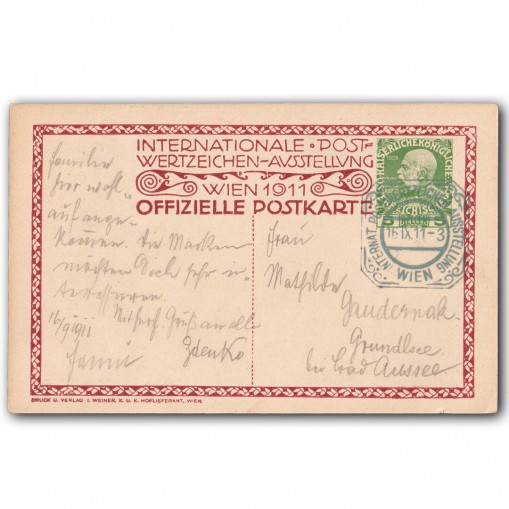 INTERNATIONALE · POST-
WERTZEICHEN-AUSSTELLUNG
WIEN 1911
OFFIZIELLE POSTKARTE
KAISERLICHE KÖNIGLICHE
5 HELLER 5
INTERNAT. POSTWERTZEICHEN AUSSTELLUNG
16.IX.11-3
WIEN
Familie
hier wohl
aufange-
kommen. Die Marken
möchten Dich sehr in-
teressieren.
16/9 1911
Mit herzl. Grüß an alle
Zdenko
Frau
Mathilde
Gaudernak
Grundlsee
bei Bad Aussee
DRUCK U. VERLAG J. WEINER, K. U. K. HOFLIEFERANT, WIEN.